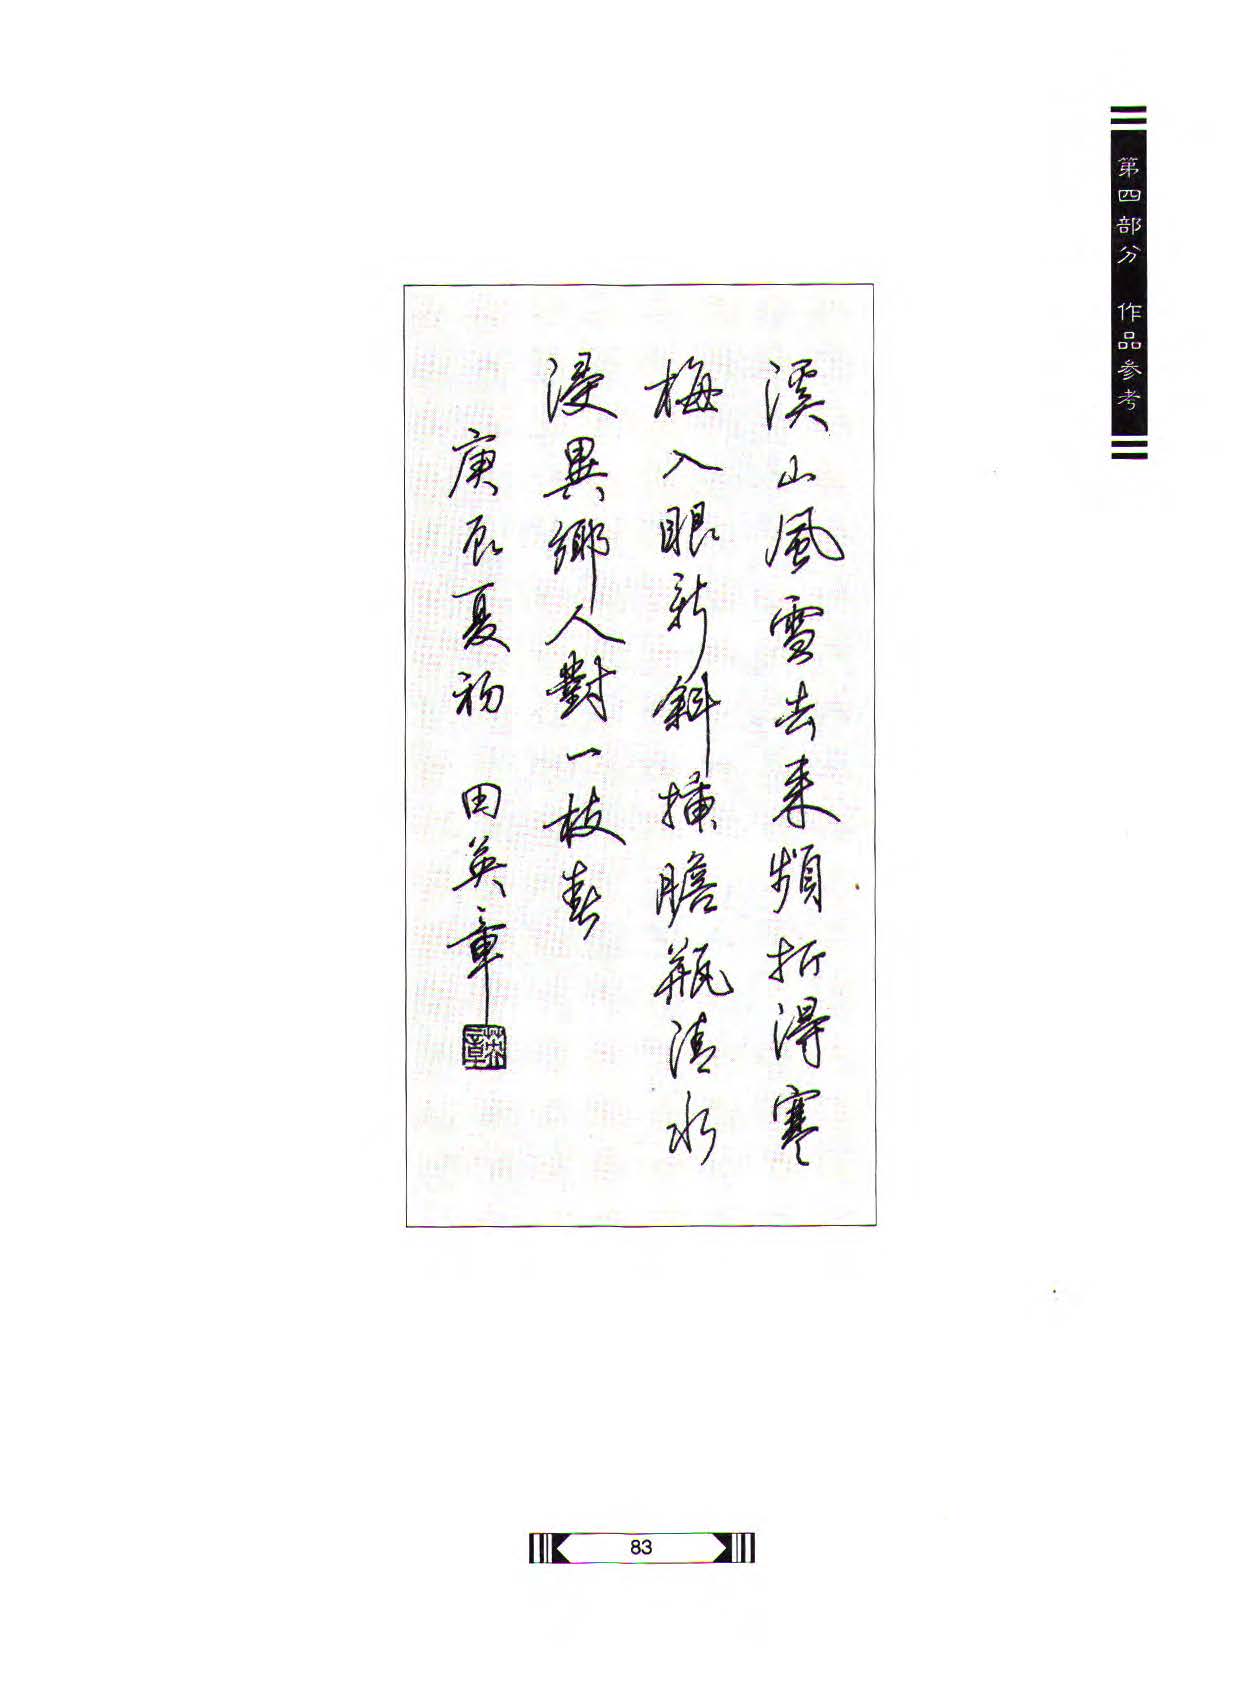 第四部分 作品參考
溪山風雪去来頻折得寒
梅入眼新斜插膽瓶清水
浸異鄉人對一枝春
庚辰夏初 田英章
英章
83